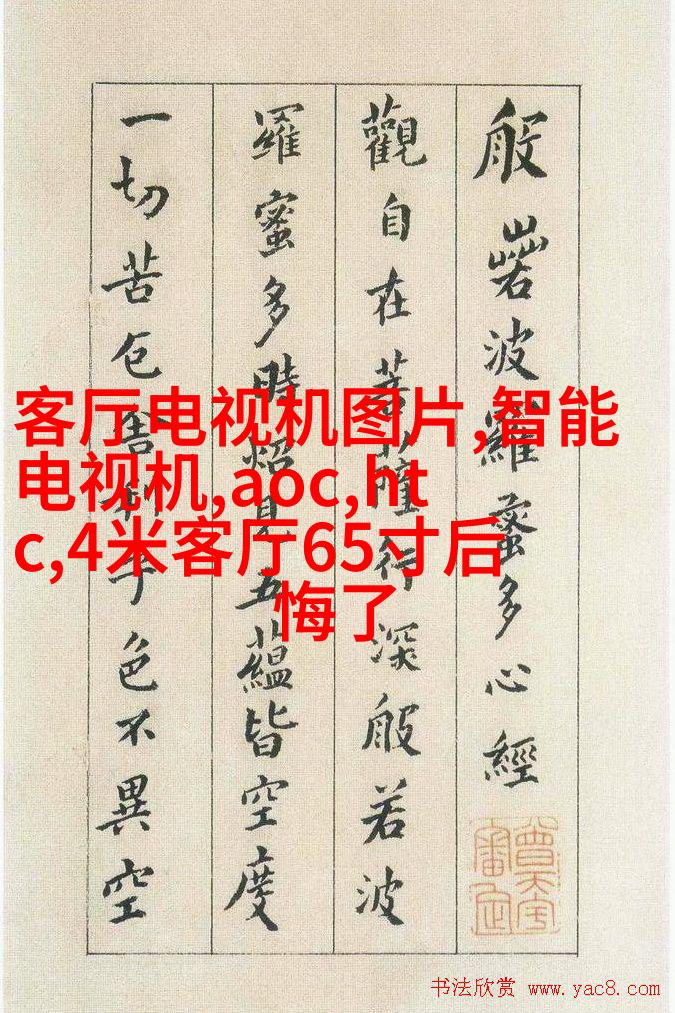 般若波羅蜜多心經
觀自在菩薩行深般若波
羅蜜多時照見五蘊皆空度
一切苦厄舍利子色不異空
客厅电视机图片,智能
电视机,aoc,ht
c,4米客厅65寸后
悔了
书法欣赏 www.yac8.com